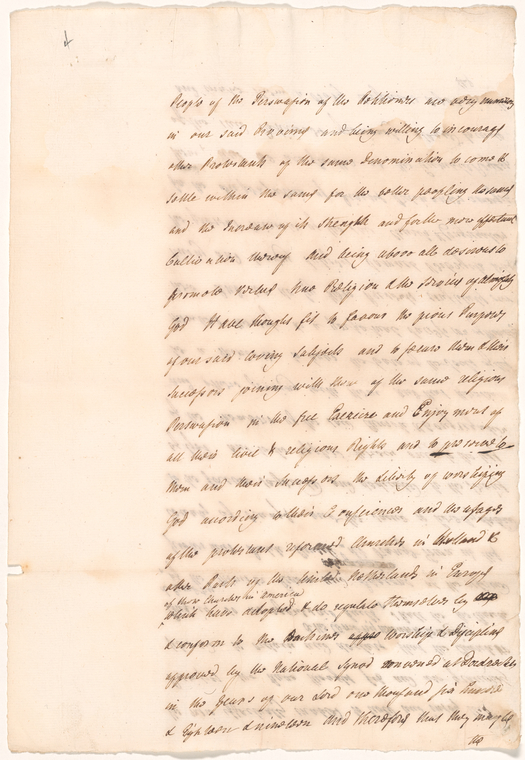 4
People of the Perswasion of the Petitioners are very numerous
in our said Province and being willing to incourage
other Protestants of the same Denomination to come &
settle within the same for the better peopling thereof
and the Increase of its Strength and for the more effectual
Cultivation thereof And being above all desirous to
promote Virtue true Religion & the Service of Almighty
God Have thought fit to favour the pious Purposes
of our said loving Subjects and to secure them & their
Successors joining with them of the same religious
Perswasion in the free Exercise and Enjoyment of
all their Civil & religious Rights and to preserve to
them and their Successors the liberty of worshipping
God according to their Consciences and the usages
of the protestant reformed Churches in Holland &
other Parts of the United Netherlands in Europe
of those Churches in America
which have adopted & do regulate themselves by
& conform to the Doctrines Worship & Discipline
approved by the National Synod convened at Dordrecht
in the Years of our Lord one thousand six hundred
& Eighteen & nineteen And therefore that they may be